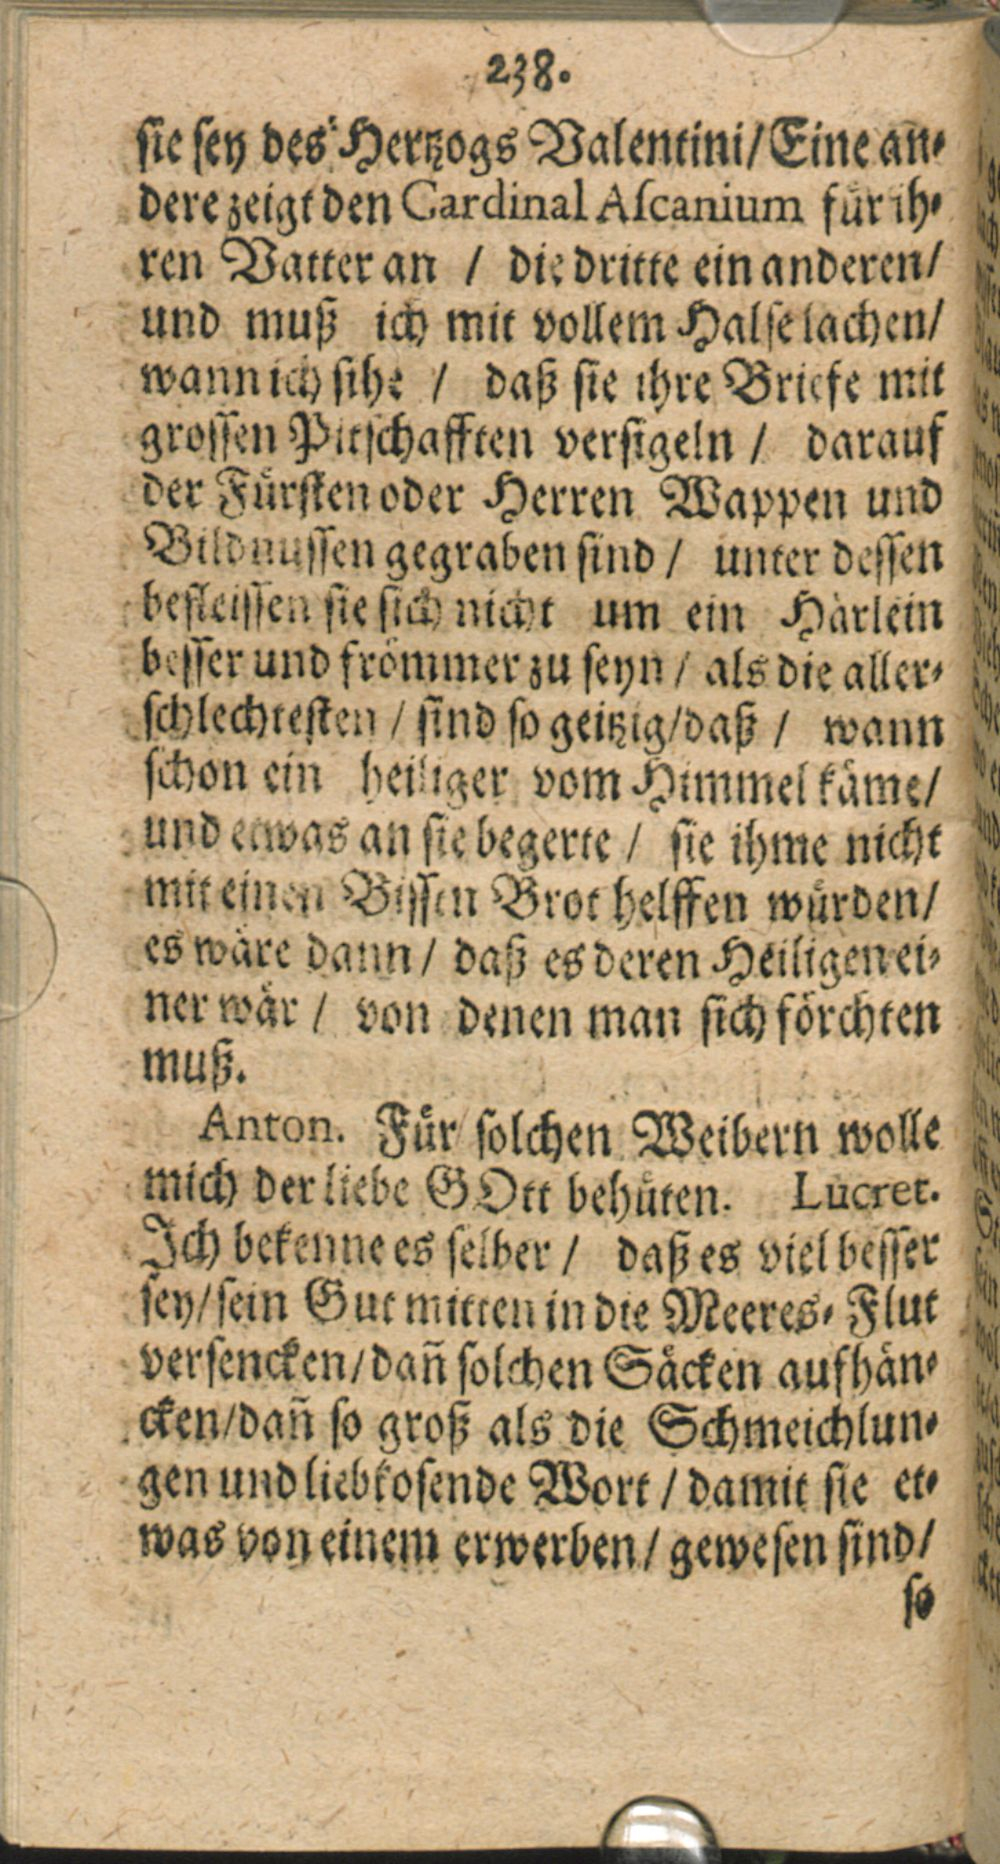 238.
sie sey des Hertzogs Valentini/ Eine an-
dere zeigt den Cardinal Aſcanium für ih-
ren Vatter an / die dritte ein anderen/
und muß ich mit vollem Halse lachen/
wann ich sihe / daß sie ihre Briefe mit
grossen Pitschafften versigeln / darauf
der Fürsten oder Herren Wappen und
Bildnussen gegraben sind / unter dessen
befleissen sie sich nicht um ein Härlein
besser und frömmer zu seyn / als die aller-
schlechtesten / sind so geitzig/ daß / wann
schon ein heiliger vom Himmel käme/
und etwas an sie begerte / sie ihme nicht
mit einen Bissen Brot helffen würden/
es wäre dann / daß es deren Heiligen ei-
ner wär / von denen man sich förchten
muß.
Anton. Für solchen Weibern wolle
mich der liebe GOtt behüten. Lucret.
Ich bekenne es selber / daß es viel besser
sey/ sein Gut mitten in die Meeres-Flut
versencken/ dañ solchen Säcken aufhän-
cken/ dañ so groß als die Schmeichlun-
gen und liebkosende Wort / damit sie et-
was von einem erwerben/ gewesen sind/
so